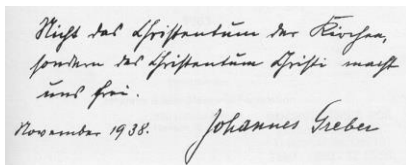 Nicht das Christentum der Kirchen,
sondern das Christentum Christi macht
uns frei.
November 1938. Johannes Greber